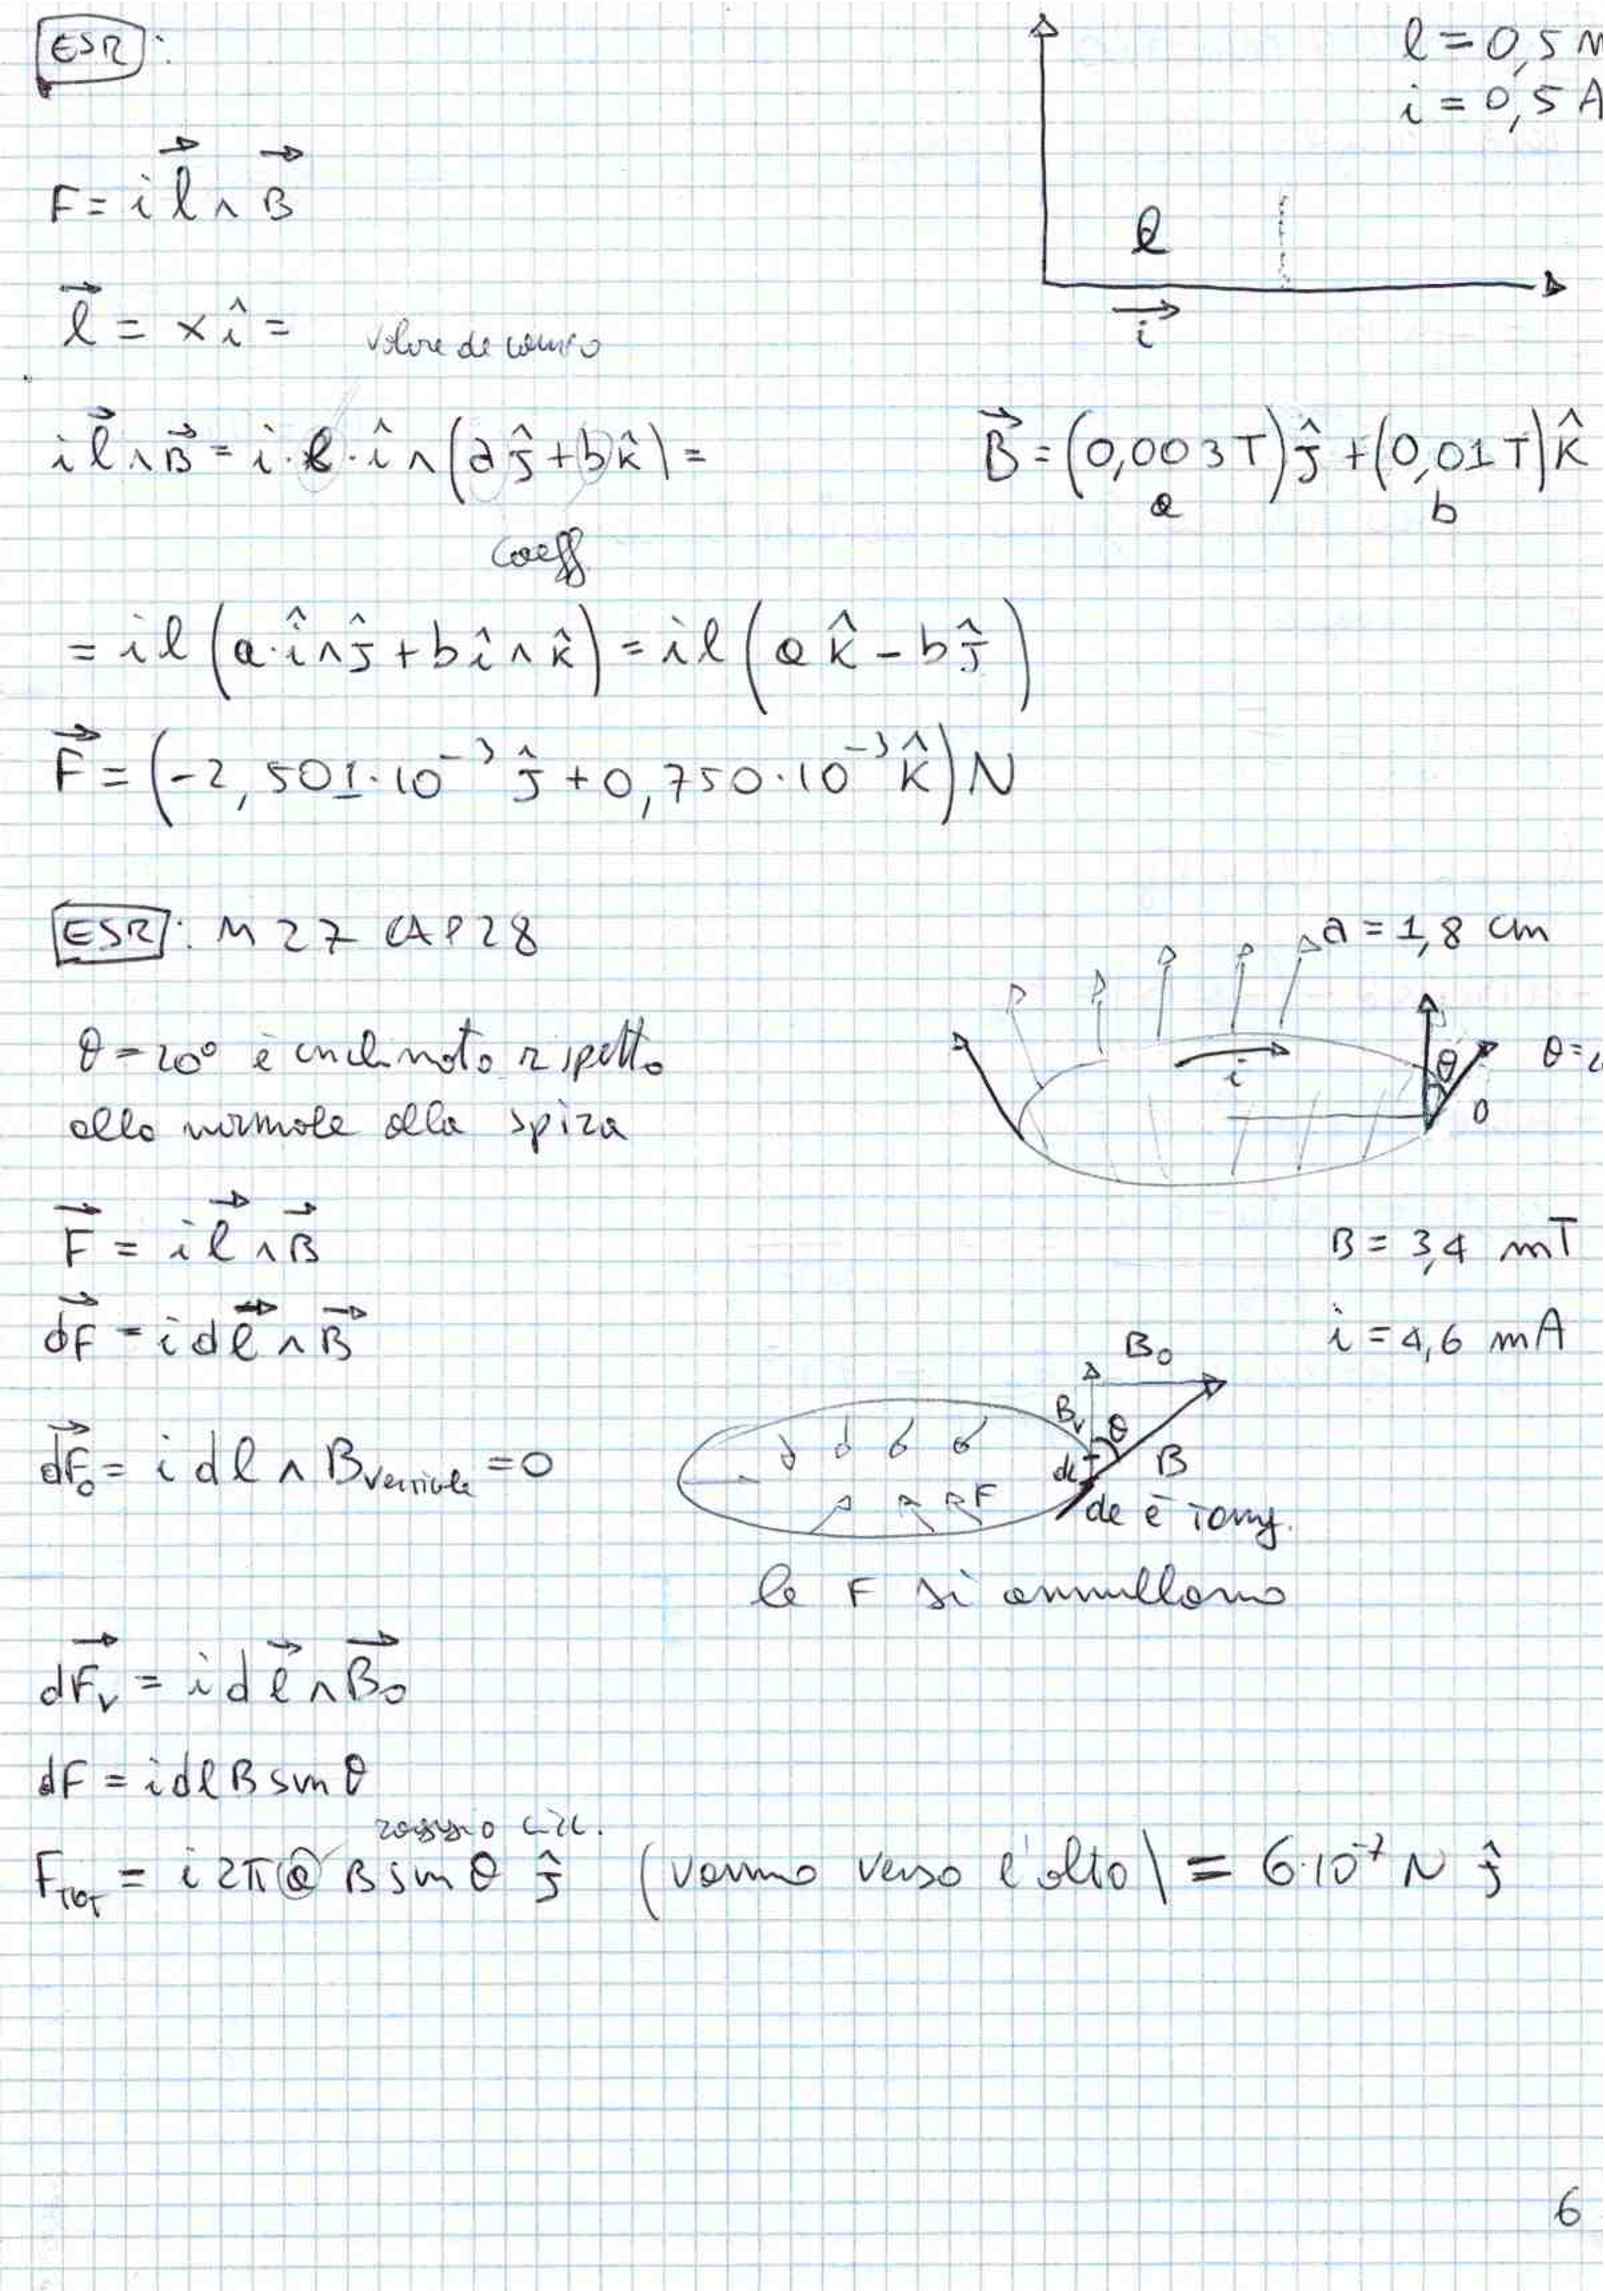 ESR:
l = 0,5 m
i = 0,5 A
F = i l⃗ ∧ B⃗
l
i⃗
l⃗ = x î =
i l⃗ ∧ B⃗ = i · l · î ∧ (a ĵ + b k̂) =
B⃗ = (0,003 T) ĵ + (0,01 T) k̂
a b
coeff
= i l (a · î ∧ ĵ + b î ∧ k̂) = i l (a k̂ − b ĵ)
F⃗ = (−2,501 · 10⁻³ ĵ + 0,750 · 10⁻³ k̂) N
ESR: M 27 CAP 28
a = 1,8 cm
θ = 20° è inclinato rispetto
alla normale alla spira
i
θ
θ = 2
F⃗ = i l⃗ ∧ B⃗
B = 3,4 mT
dF⃗ = i dl⃗ ∧ B⃗
i = 4,6 mA
B₀
Bv θ
dl B
F
dF⃗₀ = i dl ∧ B verticale = 0
dl è tang.
le F si annullano
dF⃗v = i dl⃗ ∧ B⃗₀
dF = i dl B sin θ
raggio circ.
F tot = i 2π a B sin θ ĵ (vanno verso l'alto) = 6·10⁻⁷ N ĵ
6